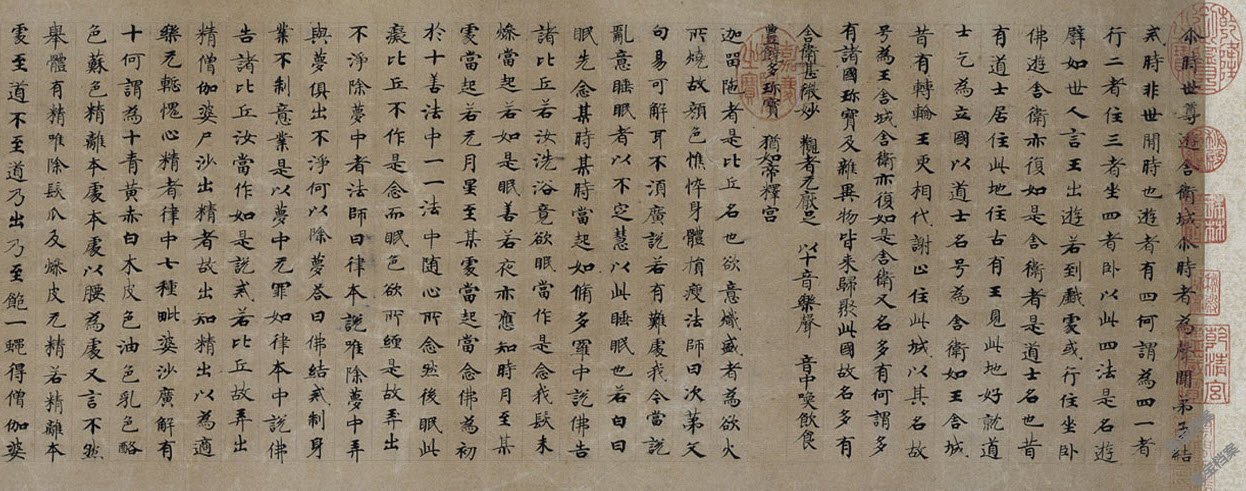 尒時世尊遊舍衛城尒時者為聲聞弟子結
戒時非世間時也遊者有四何謂為四一者
行二者住三者坐四者卧以此四法是名遊
譬如世人言王出遊若到戲處或行住坐卧
佛遊舍衛亦復如是舍衛者是道士名也昔
有道士居住此地往古有王見此地好就道
士乞為立國以道士名号為舍衛如王舍城
昔有轉輪王更相代謝止住此城以其名故
号為王舍城舍衛亦復如是舍衛又名多有何謂多
有諸國珎寳及雜異物皆来歸聚此國故名多有
舍衛甚嚴妙 觀者无厭足 以十音樂聲 音中喚飲食
豊饒多珎寳 猶如帝釋宮
迦留陁者是比丘名也欲意熾盛者為欲火
所燒故顔色憔悴身體損瘦法師曰次第文
句易可解耳不湏廣說若有難處我今當說
亂意睡眠者以不定慧以此睡眠也若白日
眠先念某時某時當起如脩多羅中說佛告
諸比丘若汝洗浴竟欲眠當作是念我髮未
燥當起若如是眠善若夜亦應知時月至某
處當起若无月星至某處當起當念佛為初
於十善法中一一法中随心所念然後眠此
癡比丘不作是念而眠色欲所纏是故弄出
不淨除夢中者法師曰律本說唯除夢中弄
與夢俱出不淨何以除夢荅曰佛結戒制身
業不制意業是以夢中无罪如律本中說佛
告諸比丘汝當作如是說戒若比丘故弄出
精僧伽婆尸沙出精者故出知精出以為適
樂无慙愧心精者律中七種毗婆沙廣解有
十何謂為十青黄赤白木皮色油色乳色酪
色蘇色精離本處本處以腰為處又言不然
舉體有精唯除髮爪及燥皮无精若精離本
處至道不至道乃出乃至飽一蠅得僧伽婆
乾清宮